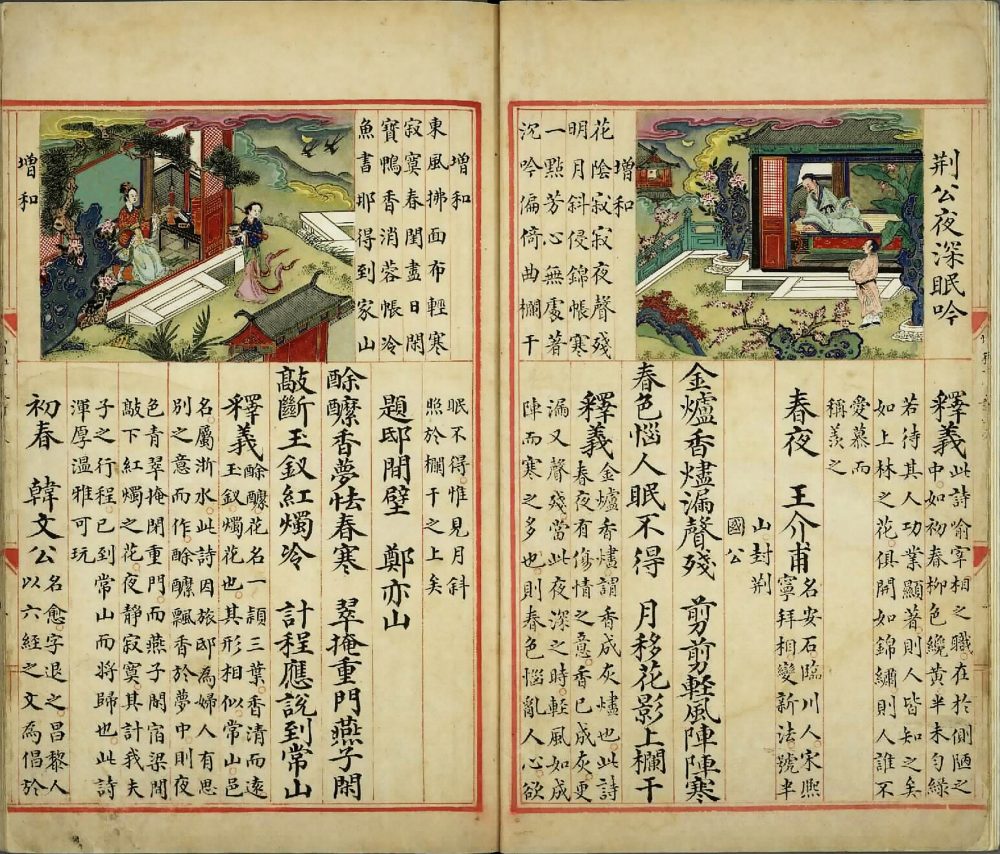 荊公夜深眠吟
釋義 此詩喻宰相之職在於側陋之
中如初春柳色纔黃半未勻綠
若待其人功業顯著則人皆知之矣
如上林之花俱開如錦繡則人誰不
愛慕而
稱羨之
春夜 王介甫 名安石臨川人宋熙
寧拜相變新法號半
山封荊
國公
金爐香燼漏聲殘 剪剪軽風陣陣寒
春色惱人眠不得 月移花影上欄干
釋義 金爐香燼謂香成灰燼也此詩
春夜有傷情之意香已成灰更
漏又聲殘當此夜深之時軽風如成
陣而寒之多也則春色惱亂人心欲
增和
花陰寂寂夜聲殘
明月斜侵錦帳寒
一點芳心無處著
沉吟偏倚曲欄干
眠不得惟見月斜
照於欄干之上矣
增和
東風拂面布輕寒
寂寞春閨盡日閑
寶鴨香消蓉帳冷
魚書那得到家山
題邸間壁 鄭亦山
酴醾香夢怯春寒 翠掩重門燕子閑
敲斷玉釵紅燭冷 計程應說到常山
釋義 酴醾花名一頴三葉香清而遠
玉釵燭花也其形相似常山邑
名屬浙水此詩因旅邸為婦人有思
別之意而作酴醾飄香於夢中則夜
色青翠掩閉重門而燕子閑宿梁間
敲下紅燭之花夜靜寂寞其計我夫
子之行程已到常山而將歸也此詩
渾厚溫雅可玩
增和
初春 韓文公 名愈字退之昌黎人
以六經之文為倡於